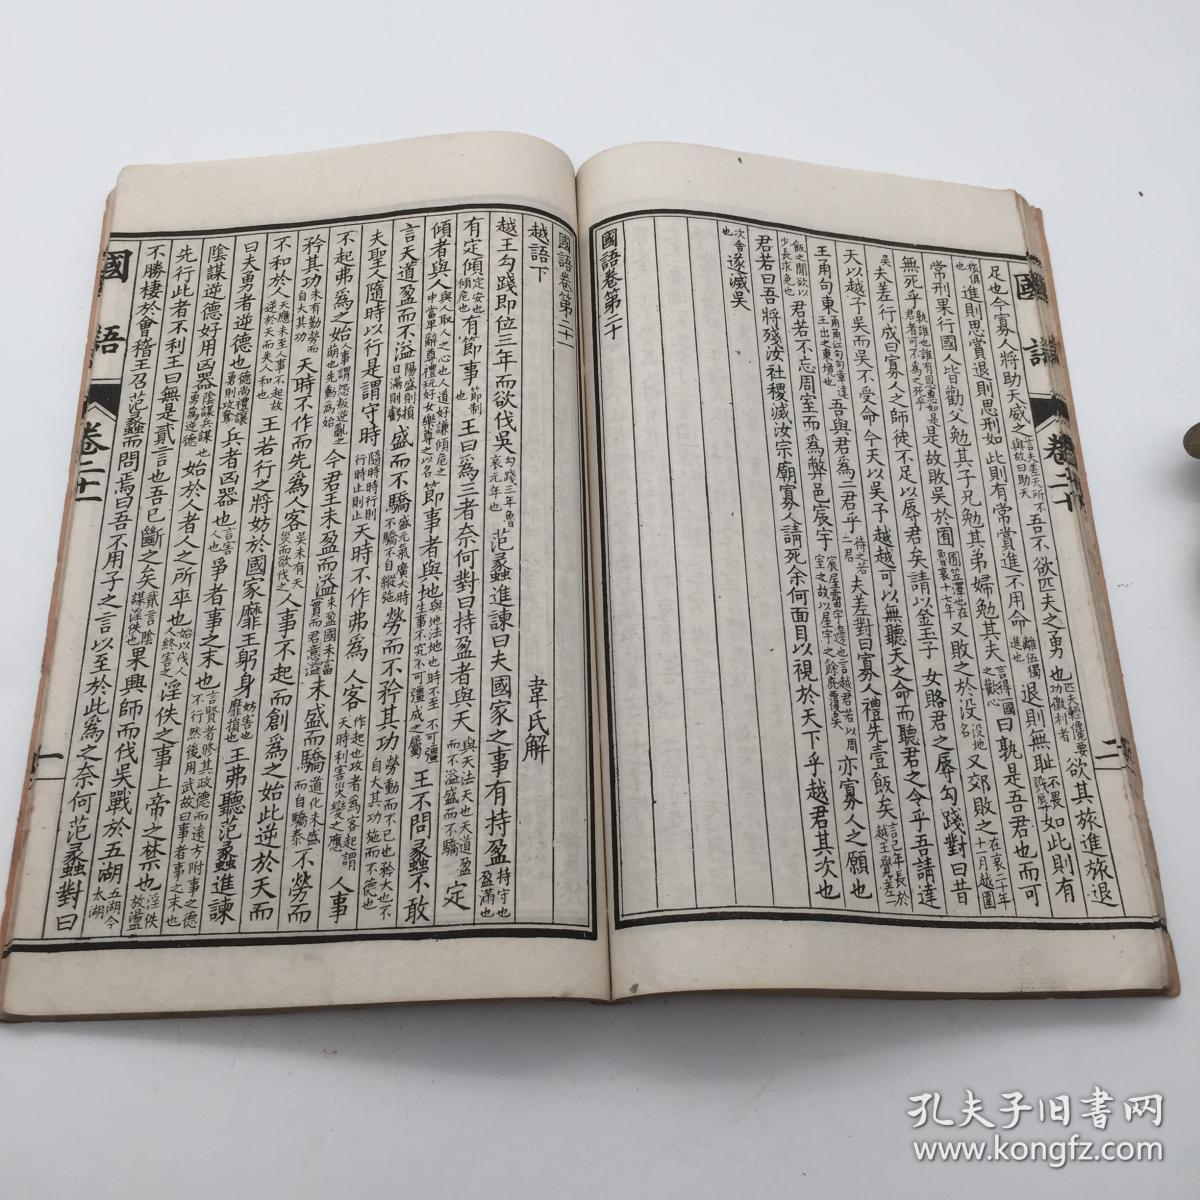 國語
卷二十
二
足也今寡人將助天威之言夫差天所不與故曰助天吾不欲匹夫之勇也匹夫輕儳要功徼利者欲其旅進旅退
旅俱也進則思賞退則思刑如此則有常賞進不用命離伍獨進也退則無恥不畏戮辱如此則有
常刑果行國人皆勸父勉其子兄勉其弟婦勉其夫言得一國之歡心曰孰是吾君也而可
無死乎孰誰也誰有恩惠如是君者可不為之死乎是故敗吳於囿囿笠澤也在魯哀十七年又敗之於没没地名又郊敗之在哀二十年十一月越圍
吳夫差行成曰寡人之師徒不足以辱君矣請以金玉子女賂君之辱勾踐對曰昔
天以越予吳而吳不受命今天以吳予越越可以無聽天之命而聽君之令乎吾請達
王甬句東甬甬江句句章達王出之東境也吾與君為二君乎待之若二君夫差對曰寡人禮先壹飯矣言己年長於越王覺差一
飯之間欲以少長求免也君若不忘周室而為弊邑宸宇宸屋霤宇邊也言越君若以周室之故以屋宇之餘庇覆吳亦寡人之願也
君若曰吾將殘汝社稷滅汝宗廟寡人請死余何面目以視於天下乎越君其次也
次舍也遂滅吳
國語卷第二十
國語卷第二十一
越語下 韋氏解
越王勾踐即位三年而欲伐吳勾踐三年魯哀元年也范蠡進諫曰夫國家之事有持盈持守也盈滿也
有定傾定安也傾危也有節事節制也王曰為三者奈何對曰持盈者與天與天法天也天道盈而不溢盛而不驕定
傾者與人與人取人之心也人道好謙傾危之中當卑辭尊禮玩好女樂尊之以名節事者與地與地法地也時不至不可彊生事不究不可彊成之屬王不問蠡不敢
言天道盈而不溢陽盛則損日滿則虧盛而不驕盛元氣廣大時不驕不自縱弛勞而不矜其功勞動而不已也矜大也不自大其功施而不德也
夫聖人隨時以行是謂守時隨時時行則行時止則止天時不作弗為人客作起也攻者為客起謂天時利害災變之應人事
不起弗為之始人事謂怨叛逆亂之萌也先動為始今君王未盈而溢未盈國未富實而君意溢未盛而驕道化未盛而自驕泰不勞而
矜其功未有勤勞而自大其功天時不作而先為人客吳未有天災而欲伐之人事不起而創為之始此逆於天而
不和於人天應未至人事不起故逆於天而失人和也王若行之將妨於國家靡王躬身妨害也靡損也王弗聽范蠡進諫
曰夫勇者逆德也德尚禮讓勇則攻奪兵者凶器也言害人也爭者事之末也言賢者修其政德而遠方附事之德不行然後用武故曰事者事之末也
陰謀逆德好用凶器陰謀兵謀也勇為逆德始於人者人之所卒也始以伐人人終害之淫佚之事上帝之禁也淫佚放濫
先行此者不利王曰無是貳言也吾已斷之矣貳言陰謀淫佚也果興師而伐吳戰於五湖五湖今太湖
不勝棲於會稽王召范蠡而問焉曰吾不用子之言以至於此為之奈何范蠡對曰
國語
卷二十一
一
孔夫子旧书网
www.kongfz.com